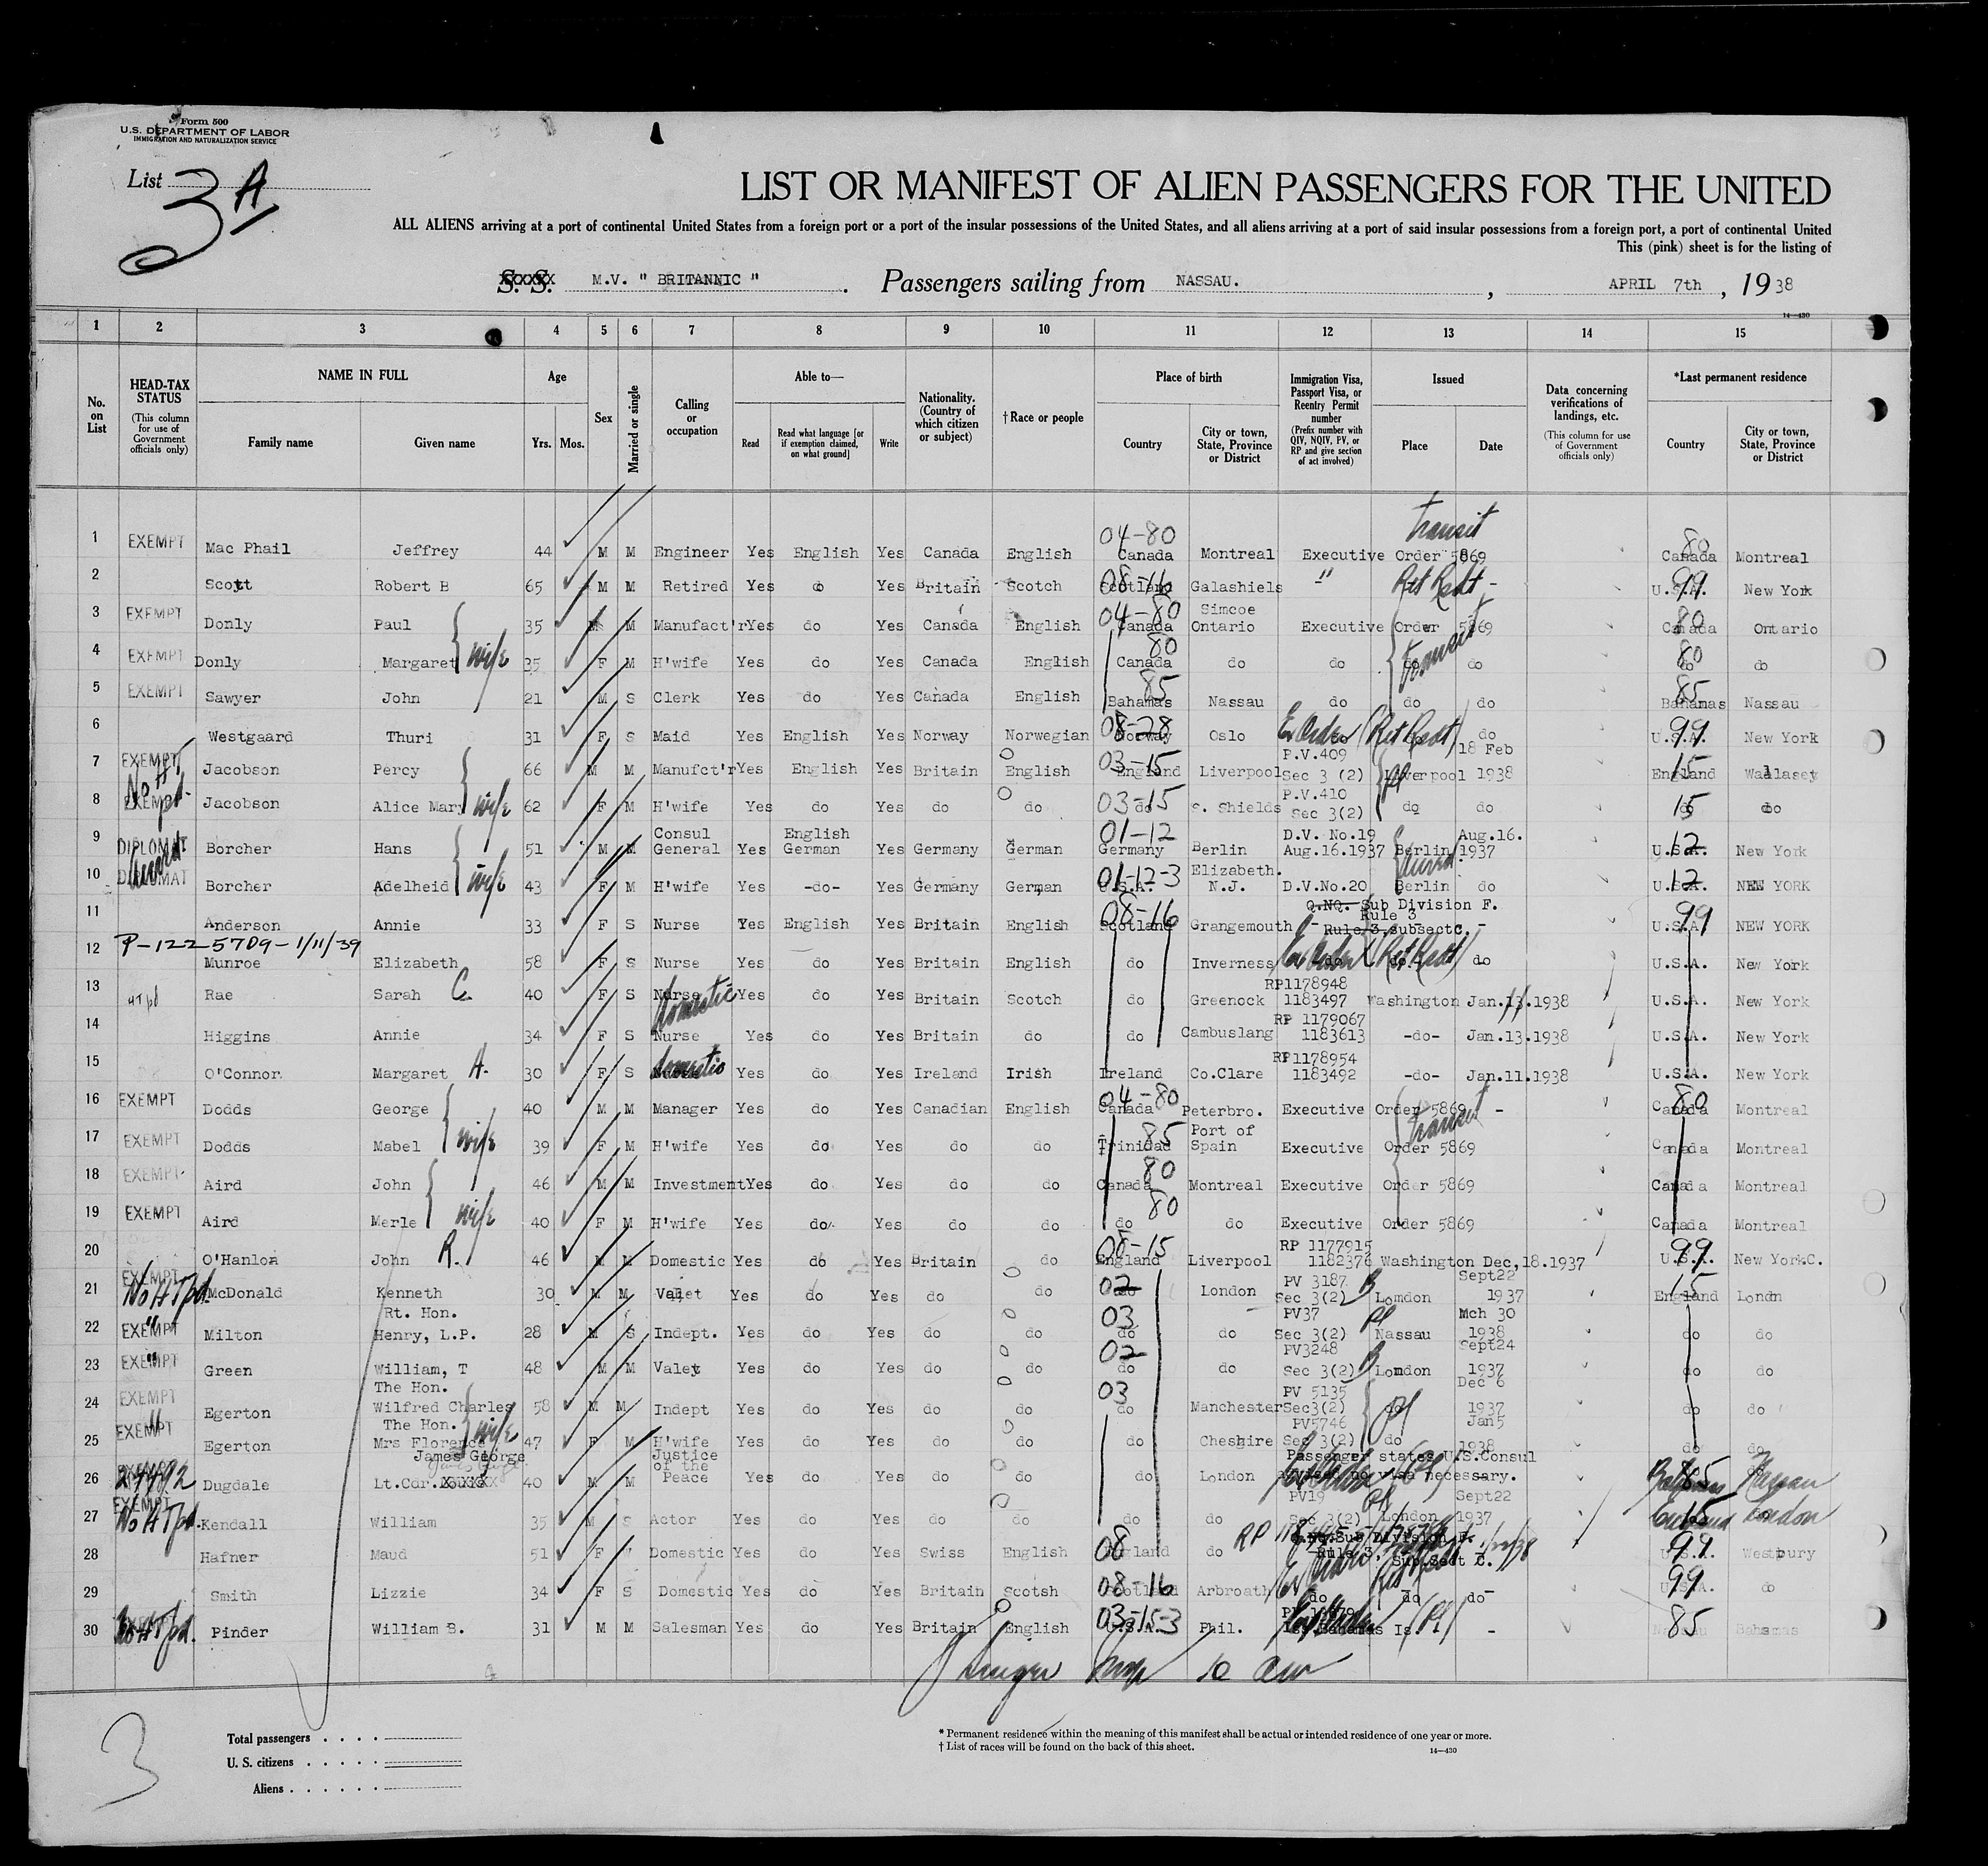 Form 500
U.S. DEPARTMENT OF LABOR
IMMIGRATION AND NATURALIZATION SERVICE
List 3 A
LIST OR MANIFEST OF ALIEN PASSENGERS FOR THE UNITED
ALL ALIENS arriving at a port of continental United States from a foreign port or a port of the insular possessions of the United States, and all aliens arriving at a port of said insular possessions from a foreign port, a port of continental United
This (pink) sheet is for the listing of
S. S. M.V. " BRITANNIC " . Passengers sailing from NASSAU. , APRIL 7th , 1938
14—430
1 2 3 4 5 6 7 8 9 10 11 12 13 14 15
No. on List
HEAD-TAX STATUS (This column for use of Government officials only)
NAME IN FULL
Family name Given name
Age
Yrs. Mos.
Sex
Married or single
Calling or occupation
Able to—
Read Read what language [or if exemption claimed, on what ground] Write
Nationality. (Country of which citizen or subject)
†Race or people
Place of birth
Country City or town, State, Province or District
Immigration Visa, Passport Visa, or Reentry Permit number (Prefix number with QIV, NQIV, PV, or RP and give section of act involved)
Issued
Place Date
Data concerning verifications of landings, etc. (This column for use of Government officials only)
*Last permanent residence
Country City or town, State, Province or District
Transit
1 EXEMPT Mac Phail Jeffrey 44 M M Engineer Yes English Yes Canada English 04-80 Canada Montreal Executive Order 5869 80 Canada Montreal
2 Scott Robert B 65 M M Retired Yes do Yes Britain Scotch 08-16 Scotland Galashiels " Ret Resdt - 99 U.S.A. New York
3 EXEMPT Donly Paul 35 M M Manufact'r Yes do Yes Canada English 04-80 Canada Simcoe Ontario Executive Order 5869 80 Canada Ontario
4 EXEMPT Donly Margaret wife 35 F M H'wife Yes do Yes Canada English 80 Canada do do do Transit do 80 do do
5 EXEMPT Sawyer John 21 M S Clerk Yes do Yes Canada English 85 Bahamas Nassau do do do 85 Bahamas Nassau
6 Westgaard Thuri 31 F S Maid Yes English Yes Norway Norwegian 08-28 Norway Oslo Ex Order Ret Resdt do 99 U.S.A. New York
7 EXEMPT Jacobson Percy 66 M M Manufct'r Yes English Yes Britain English 03-15 England Liverpool P.V.409 Sec 3 (2) Liverpool 18 Feb 1938 15 England Wallasey
8 EXEMPT No HT pd. Jacobson Alice Mary wife 62 F M H'wife Yes do Yes do do 03-15 do S. Shields P.V.410 Sec 3(2) do do 15 do do
9 DIPLOMAT Borcher Hans 51 M M Consul General Yes English German Yes Germany German 01-12 Germany Berlin D.V. No.19 Aug.16.1937 Berlin Aug.16. 1937 12 U.S.A. New York
10 DIPLOMAT Borcher Adelheid wife 43 F M H'wife Yes -do- Yes Germany German 01-12-3 U.S.A. Elizabeth. N.J. D.V.No.20 Berlin do 12 U.S.A. NEW YORK
11 Anderson Annie 33 F S Nurse Yes English Yes Britain English 08-16 Scotland Grangemouth Q.NQ. Sub Division F. Rule 3 Rule 3, subsectC. - 99 U.S.A. NEW YORK
P-1225709-1/11/39
12 Munroe Elizabeth 58 F S Nurse Yes do Yes Britain English do Inverness Ex Order do Ret Resdt do U.S.A. New York
13 HT pd Rae Sarah C. 40 F S Nurse Domestic Yes do Yes Britain Scotch do Greenock RP1178948 1183497 Washington Jan.11.1938 U.S.A. New York
14 Higgins Annie 34 F S Nurse Yes do Yes Britain do do Cambuslang RP 1179067 1183613 -do- Jan.13.1938 U.S.A. New York
15 O'Connor Margaret A. 30 F S Domestic Yes do Yes Ireland Irish Ireland Co.Clare RP1178954 1183492 -do- Jan.11.1938 U.S.A. New York
16 EXEMPT Dodds George 40 M M Manager Yes do Yes Canadian English 04-80 Canada Peterbro. Executive Order 5869 - 80 Canada Montreal
17 EXEMPT Dodds Mabel wife 39 F M H'wife Yes do Yes do do 85 Trinidad Port of Spain Executive Order 5869 Transit Canada Montreal
18 EXEMPT Aird John 46 M M Investment Yes do Yes do do 80 Canada Montreal Executive Order 5869 Canada Montreal
19 EXEMPT Aird Merle wife 40 F M H'wife Yes do Yes do do 80 do do Executive Order 5869 Canada Montreal
20 O'Hanlon John R. 46 M M Domestic Yes do Yes Britain do 08-15 England Liverpool RP 1177915 1182376 Washington Dec,18.1937 99 U.S.A. New York.C.
21 EXEMPT No HT pd. McDonald Kenneth 30 M M Valet Yes do Yes do do 02 do London PV 3187 Sec 3(2) London Sept22 1937 15 England London
22 EXEMPT " Milton Rt. Hon. Henry, L.P. 28 M S Indept. Yes do Yes do do 03 do do PV37 Sec 3(2) Nassau Mch 30 1938 do do
23 EXEMPT " Green William, T 48 M M Valet Yes do Yes do do 02 do do PV3248 Sec 3(2) London Sept24 1937 do do
24 EXEMPT Egerton The Hon. Wilfred Charles 58 M M Indept Yes do Yes do do 03 do Manchester PV 5135 Sec3(2) do Dec 6 1937 do do
25 EXEMPT " Egerton The Hon. Mrs Florence wife 47 F M H'wife Yes do Yes do do do Cheshire PV5746 Sec 3(2) do Jan5 1938 do do
26 Dugdale James George Lt.Cdr. 40 M M Justice of the Peace Yes do Yes do do do London Passenger states U.S.Consul advised no visa necessary. 85 Bahamas Nassau
27 EXEMPT No HT pd. Kendall William 35 M S Actor Yes do Yes do do do do PV19 Sec 3(2) London Sept22 1937 15 England London
28 Hafner Maud 51 F Domestic Yes do Yes Swiss English 08 England do RP Q.NQ.Sub Division F. Rule 3, Sub.Sect C. 99 U.S.A. Westbury
29 Smith Lizzie 34 F S Domestic Yes do Yes Britain Scotsh 08-16 Scotland Arbroath do do do 99 U.S.A. do
30 No HT pd. Pinder William B. 31 M M Salesman Yes do Yes Britain English 03-15-3 U.S.A. Phil. Bahamas Is. - 85 Nassau Bahamas
3
Total passengers
U. S. citizens
Aliens
* Permanent residence within the meaning of this manifest shall be actual or intended residence of one year or more.
† List of races will be found on the back of this sheet.
14—430